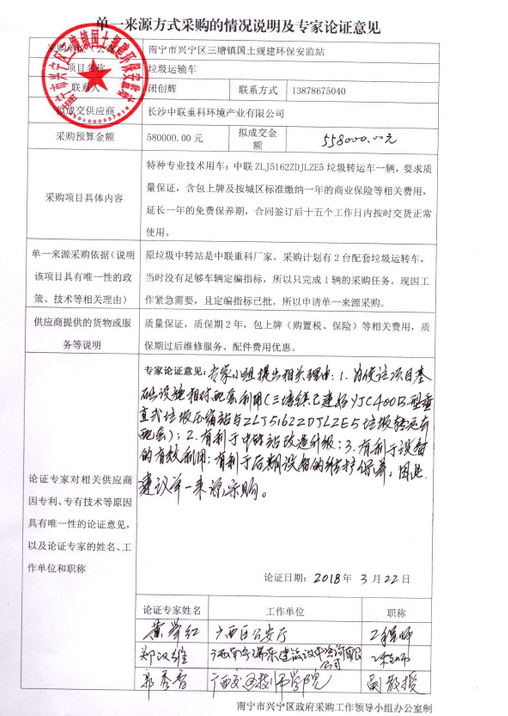 单一来源方式采购的情况说明及专家论证意见
南宁市兴宁区三塘镇国土规建环保安监站
项目名称 垃圾运输车
联系人 闭创辉 联系方式 13878675040
拟成交供应商 长沙中联重科环境产业有限公司
采购预算金额 580000.00元 拟成交金额 558000.00元
采购项目具体内容
特种专业技术用车：中联ZLJ5162ZDJLZE5垃圾转运车一辆，要求质
量保证，含包上牌及按城区标准缴纳一年的商业保险等相关费用，
延长一年的免费保养期，合同签订后十五个工作日内按时交货正常
使用。
单一来源采购依据（说明
该项目具有唯一性的政
策、技术等相关理由）
原垃圾中转站是中联重科厂家，采购计划有2台配套垃圾运转车，
当时没有足够车辆定编指标，所以只完成1辆的采购任务。现因工
作紧急需要，且定编指标已批，所以申请单一来源采购。
供应商提供的货物或服
务等说明
质量保证，质保期2年，包上牌（购置税、保险）等相关费用，质
保期过后维修服务、配件费用优惠。
论证专家对相关供应商
因专利、专有技术等原因
具有唯一性的论证意见，
以及论证专家的姓名、工
作单位和职称
专家论证意见：专家小组提出相关理由：1.为使该项目基
础设施相对配套利用（三塘镇已建好YJC400B型垂
直式垃圾压缩站与ZLJ5162ZDJLZE5垃圾转运车
配套）；2.有利于中转站改造升级；3.有利于设备
的有效利用；有利于后期设备的维护保养，因此
建议单一来源采购。
论证日期：2018年3月22日
论证专家姓名 工作单位 职称
广西区公安厅 工程师
郑汉雄
郭 广西 学院 副教授
南宁市兴宁区政府采购工作领导小组办公室制